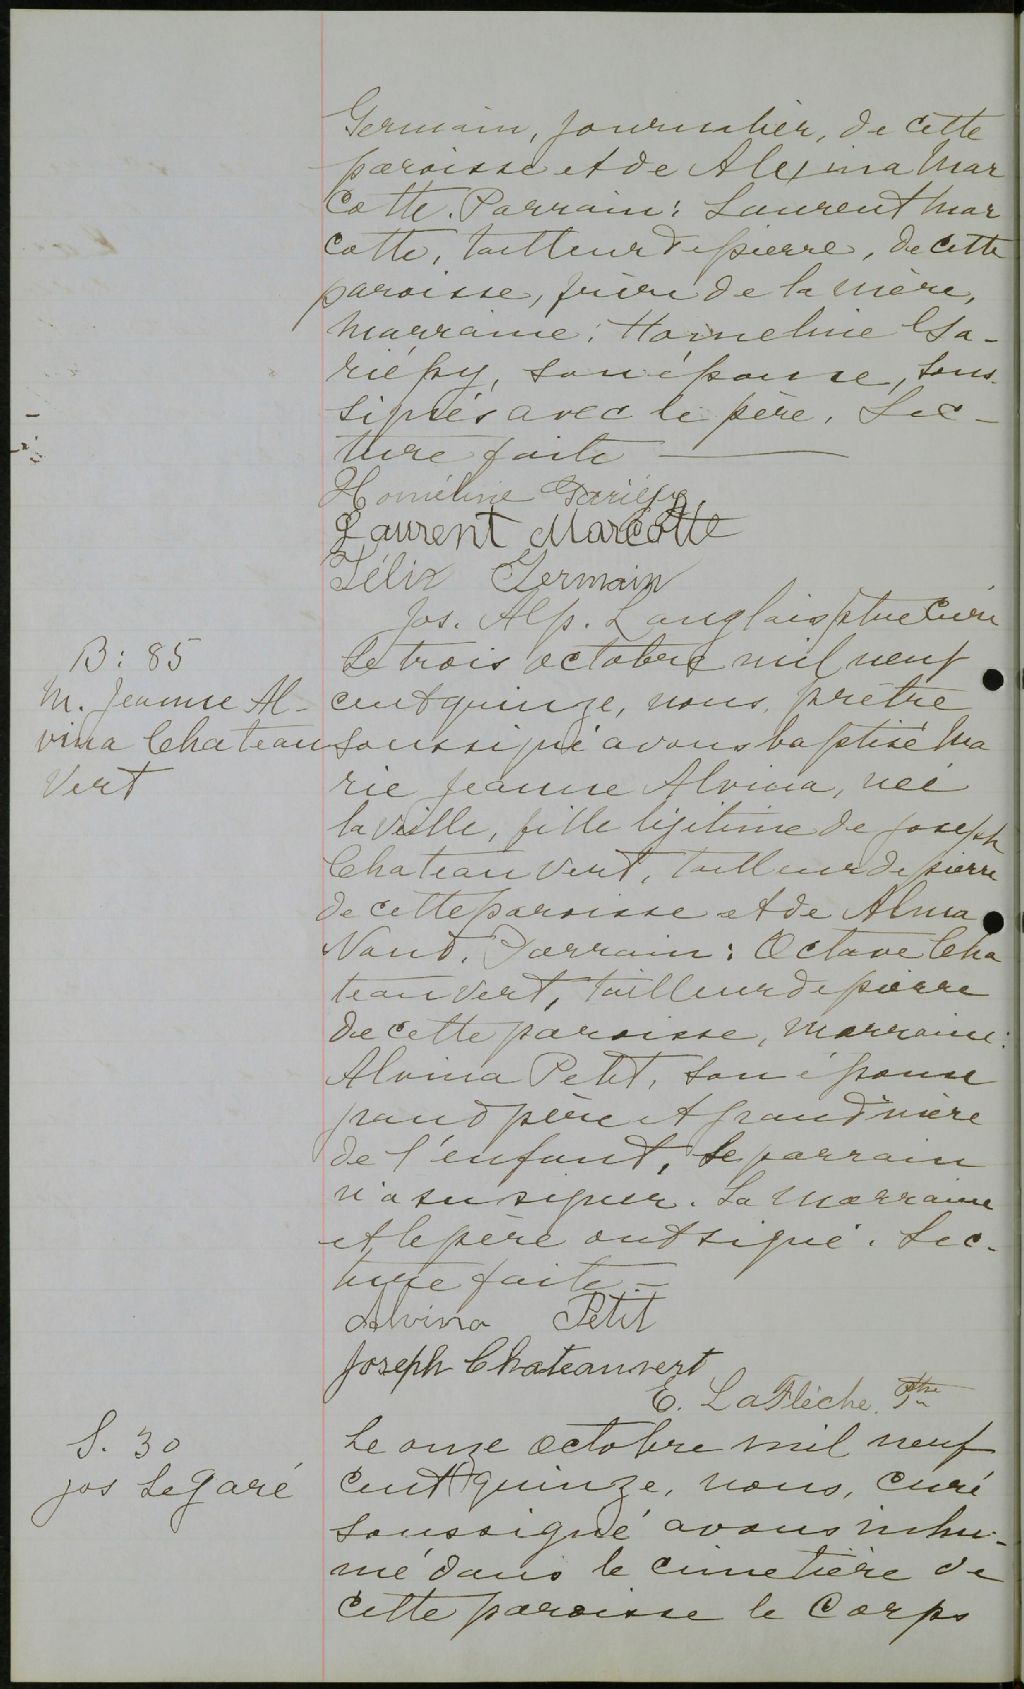 Germain, journalier, de cette
paroisse et de Alexina Mar
cotte. Parrain: Laurent Mar
cotte, tailleur de pierre, de cette
paroisse, frère de la mère,
marraine: Homeline Ga-
riépy, son épouse, sous-
signés avec le père. Lec-
ture faite
Homéline Gariépy
Laurent Marcotte
Félix Germain
Jos. Alp. Langlais ptre Curé
B: 85
M. Jeanne Al-
vina Chateau
Vert
Le trois octobre mil neuf
cent quinze, nous, prêtre
soussigné avons baptisé Ma
rie Jeanne Alvina, née
la veille, fille légitime de Joseph
Chateau Vert, tailleur de pierre
de cette paroisse et de Alma
Naud. Parrain: Octave Cha
teau Vert, tailleur de pierre
de cette paroisse, marraine:
Alvina Petit, son épouse
grand père et grand'mère
de l'enfant, Le parrain
n'a su signer. La marraine
et le père ont signé. Lec-
ture faite
Alvina Petit
Joseph Chateauvert
E. LaFlèche Ptre
S. 30
Jos Legaré
Le onze octobre mil neuf
cent quinze, nous, curé
soussigné avons inhu-
mé dans le cimetière de
cette paroisse le corps